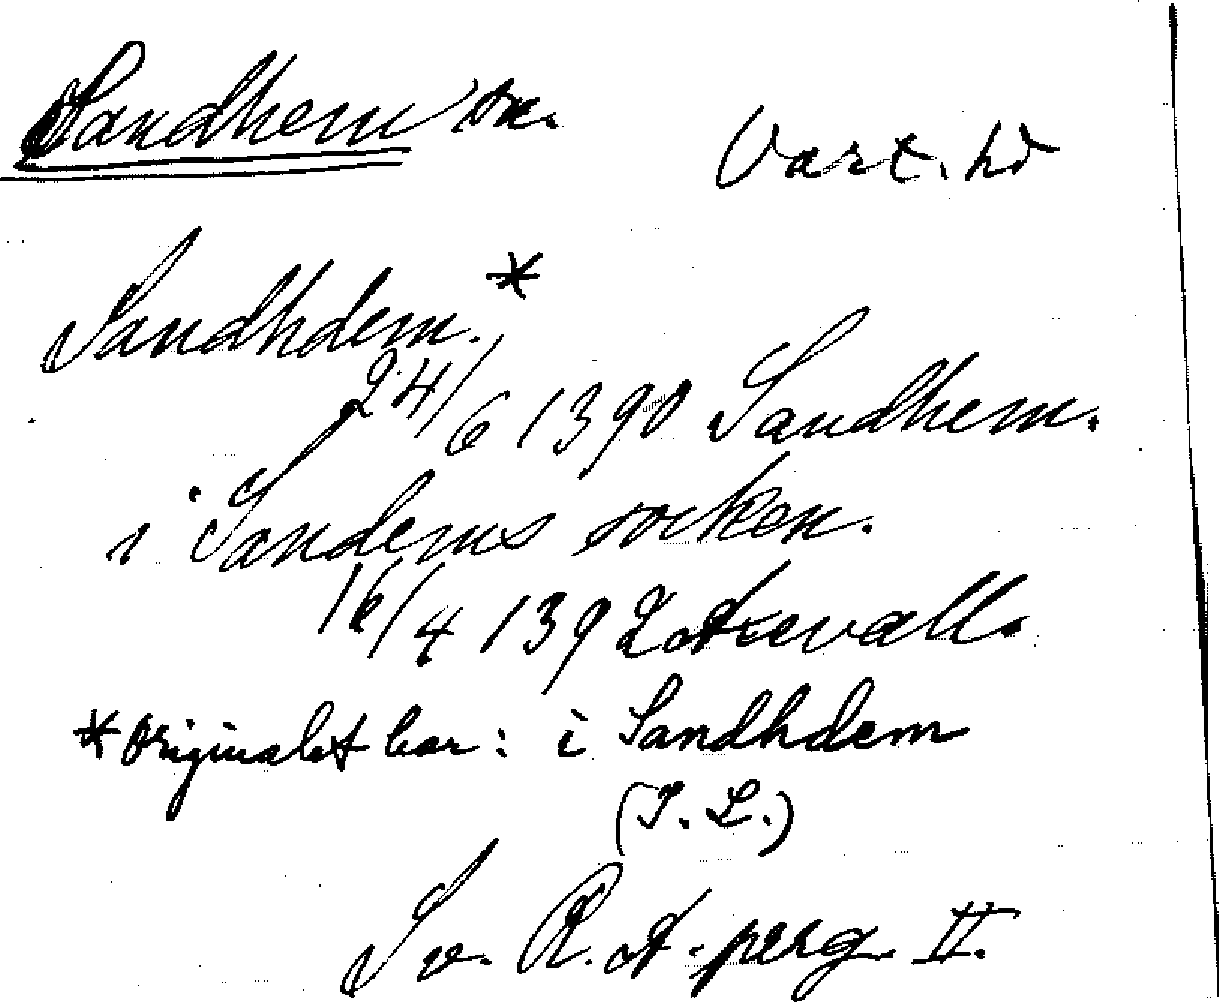 Sandhem sn.
Vart. hd
Sandhdem.*
24/6 1390 Sandhem.
i Sandems socken.
16/4 1392 Axevall.
* Originalet har: i Sandhdem
(I. L.)
Sv. R. A. perg. II.